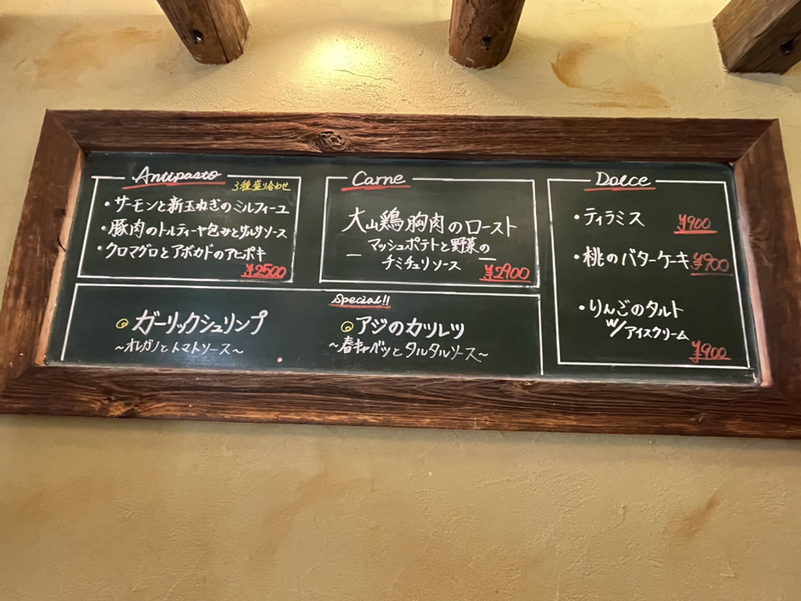 Antipasto
3種盛り合わせ
・サーモンと新玉ねぎのミルフィーユ
・豚肉のトルティーヤ包みとサルサソース
・クロマグロとアボカドのアヒポキ
¥2500
Carne
大山鶏胸肉のロースト
マッシュポテトと野菜の
チミチュリソース
¥2900
Special!!
ガーリックシュリンプ
～オレガノとトマトソース～
アジのカツレツ
～春キャベツとタルタルソース～
Dolce
・ティラミス ¥900
・桃のバターケーキ ¥900
・りんごのタルト
w/アイスクリーム
¥900